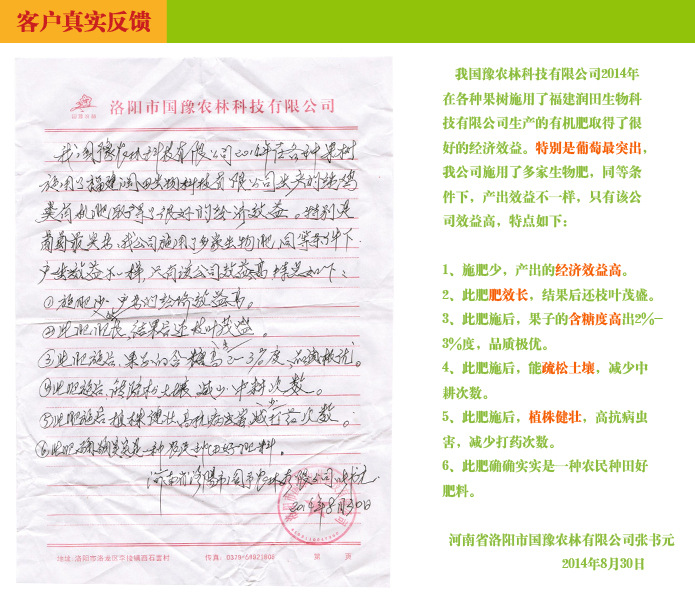 客户真实反馈
洛阳市国豫农林科技有限公司
我国豫农林科技有限公司2014年在各种果树
施用了福建润田生物科技有限公司生产的纯鸡
粪有机肥取得了很好的经济效益。特别是
葡萄最突出,我公司施用了多家生物肥,同等条件下
产出效益不一样,只有该公司效益高,特点如下:
①施肥少,产出的经济效益高。
②此肥肥长,结果后还枝叶茂盛。
③此肥施后,果子的含糖高出2-3%度,品质极优。
④此肥施后,能疏松土壤,减少中耕次数。
⑤此肥施后植株健壮,高抗病虫害,减少打药次数。
⑥此肥确确实实是一种农民种田好肥料。
河南省洛阳市国豫农林有限公司张书元
2014年8月30日
地址:洛阳市洛龙区李楼镇西石坝村 传真:0379-69821808 第 页
我国豫农林科技有限公司2014年
在各种果树施用了福建润田生物科
技有限公司生产的有机肥取得了很
好的经济效益。特别是葡萄最突出,
我公司施用了多家生物肥,同等条
件下,产出效益不一样,只有该公
司效益高,特点如下:
1、施肥少,产出的经济效益高。
2、此肥肥效长,结果后还枝叶茂盛。
3、此肥施后,果子的含糖度高出2%-
3%度,品质极优。
4、此肥施后,能疏松土壤,减少中
耕次数。
5、此肥施后,植株健壮,高抗病虫
害,减少打药次数。
6、此肥确确实实是一种农民种田好
肥料。
河南省洛阳市国豫农林有限公司张书元
2014年8月30日